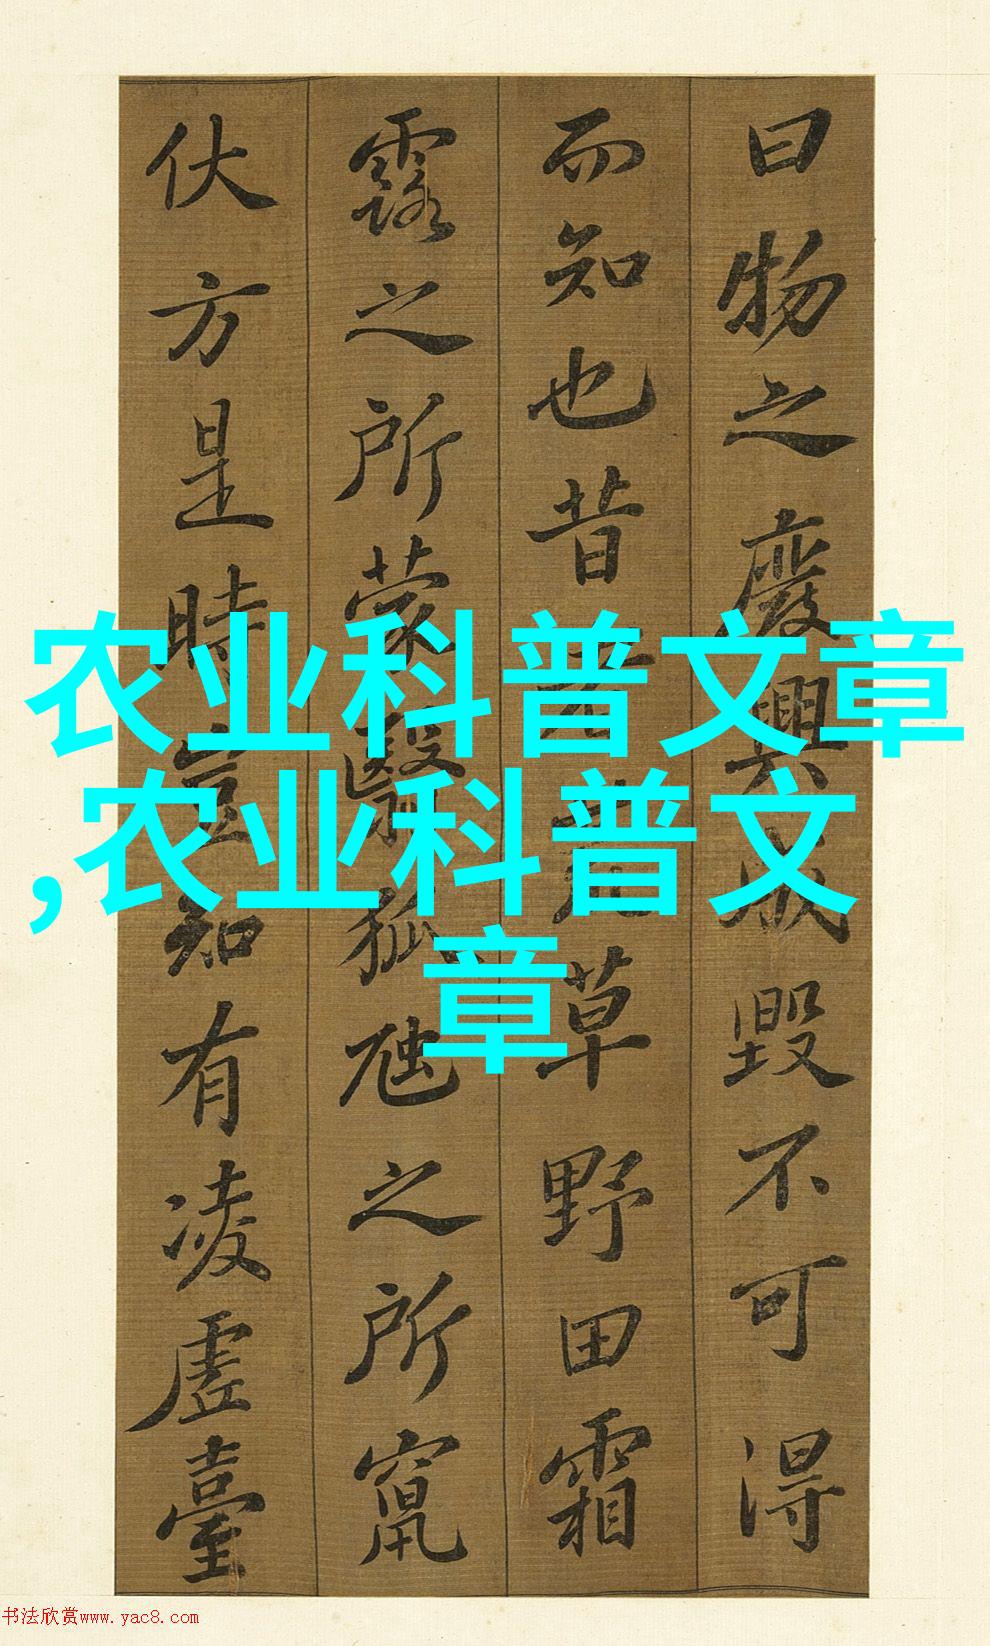 曰物之廢興成毀不可得
而知也昔者荒草野田霜
露之所蒙翳狐虺之所竄
伏方是時豈知有凌虛臺
农业科普文章
,农业科普文
章
书法欣赏www.yac8.com